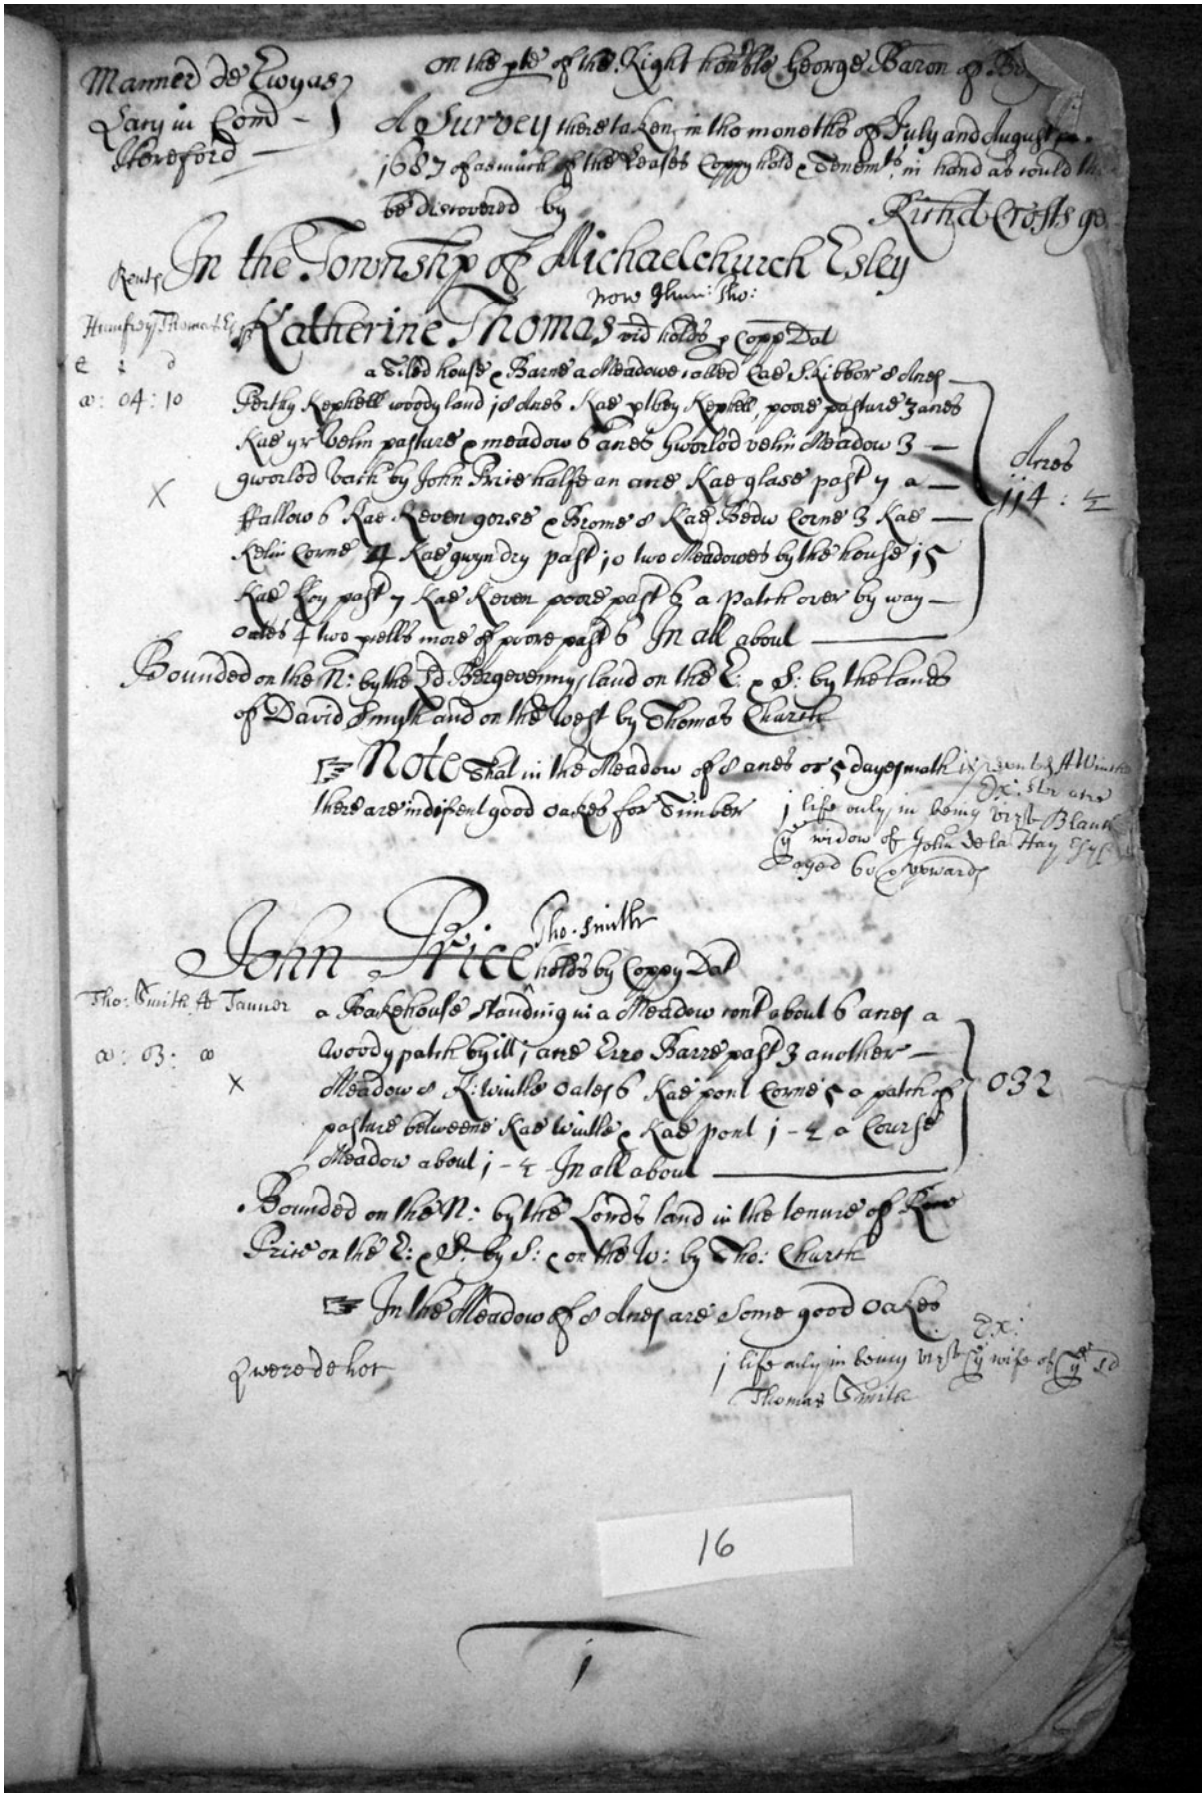 Mannerd de Ewyas
Lacy in Comd
Hereford
On the pte of the Right honble George Baron of
A Survey there taken in the moneths of July and August
1687 of asmuch of the Leases Coppyhold & Tenemts in hand as could
be discovered by Richd Crofts
In the Township of Michaelchurch Esley
Rents
now Hum: Tho:
Humfrey Thomas Esq
Katherine Thomas vid holds p Copp Dat
£ s d
a Tiled house & Barne a Meadowe called Cae Skibbor 8 Acres
00: 04: 10
Perthy Kephell woody land 18 Acres Kae Kephell, poore pasture 3 acres
Kae yr velin pasture & meadow 6 acres Gworlod velin Meadow 3
gworlod vach by John Price halfe an acre Kae glase past 7 a
X
ffallow 6 Kae Keven gorse & Brome 8 Kae Bedw Corne 3 Kae
Acres
114: ½
Kelin Corne 4 Kae gwyn dry past 10 two Meadowes by the house 15
Kae Koy past 7 Kae Keven poore past 6 a Patch over by way
Oates 4 two more of poore past 6 In all about
Bounded on the N: by the Ld Bergevennys land on the E: & S: by the lands
of David Smyth and on the West by Thomas Church
Note That in the Meadow of 8 acres or 5 dayes math
there are good Oakes for Timber
Ex:
1 life only in being vizt
ye widow of John De la Hay
aged 60 & upwards
Tho. Smith
John Price holds by Coppy Dat
Tho: Smith Tanner
a Bakehouse standing in a Meadow cont about 6 acres a
00: 03: 00
woody patch by ill 1 acre Erro Barre past 3 another
X
Meadow 8 K: Wintle Oates 6 Kae pont Corne 5 a patch of
032
pasture betweene Kae Wintle & Kae pont 1 - ½ a Course
Meadow about 1 - ½ In all about
Bounded on the N: by the Lords land in the tenure of
Price on the E: & S: by S: & on the W: by Tho: Church
In the Meadow of 8 Acres are some good Oakes
Ex:
Qwere de her
1 life only in being vizt ye wife of ye sd
Thomas Smith
16
1